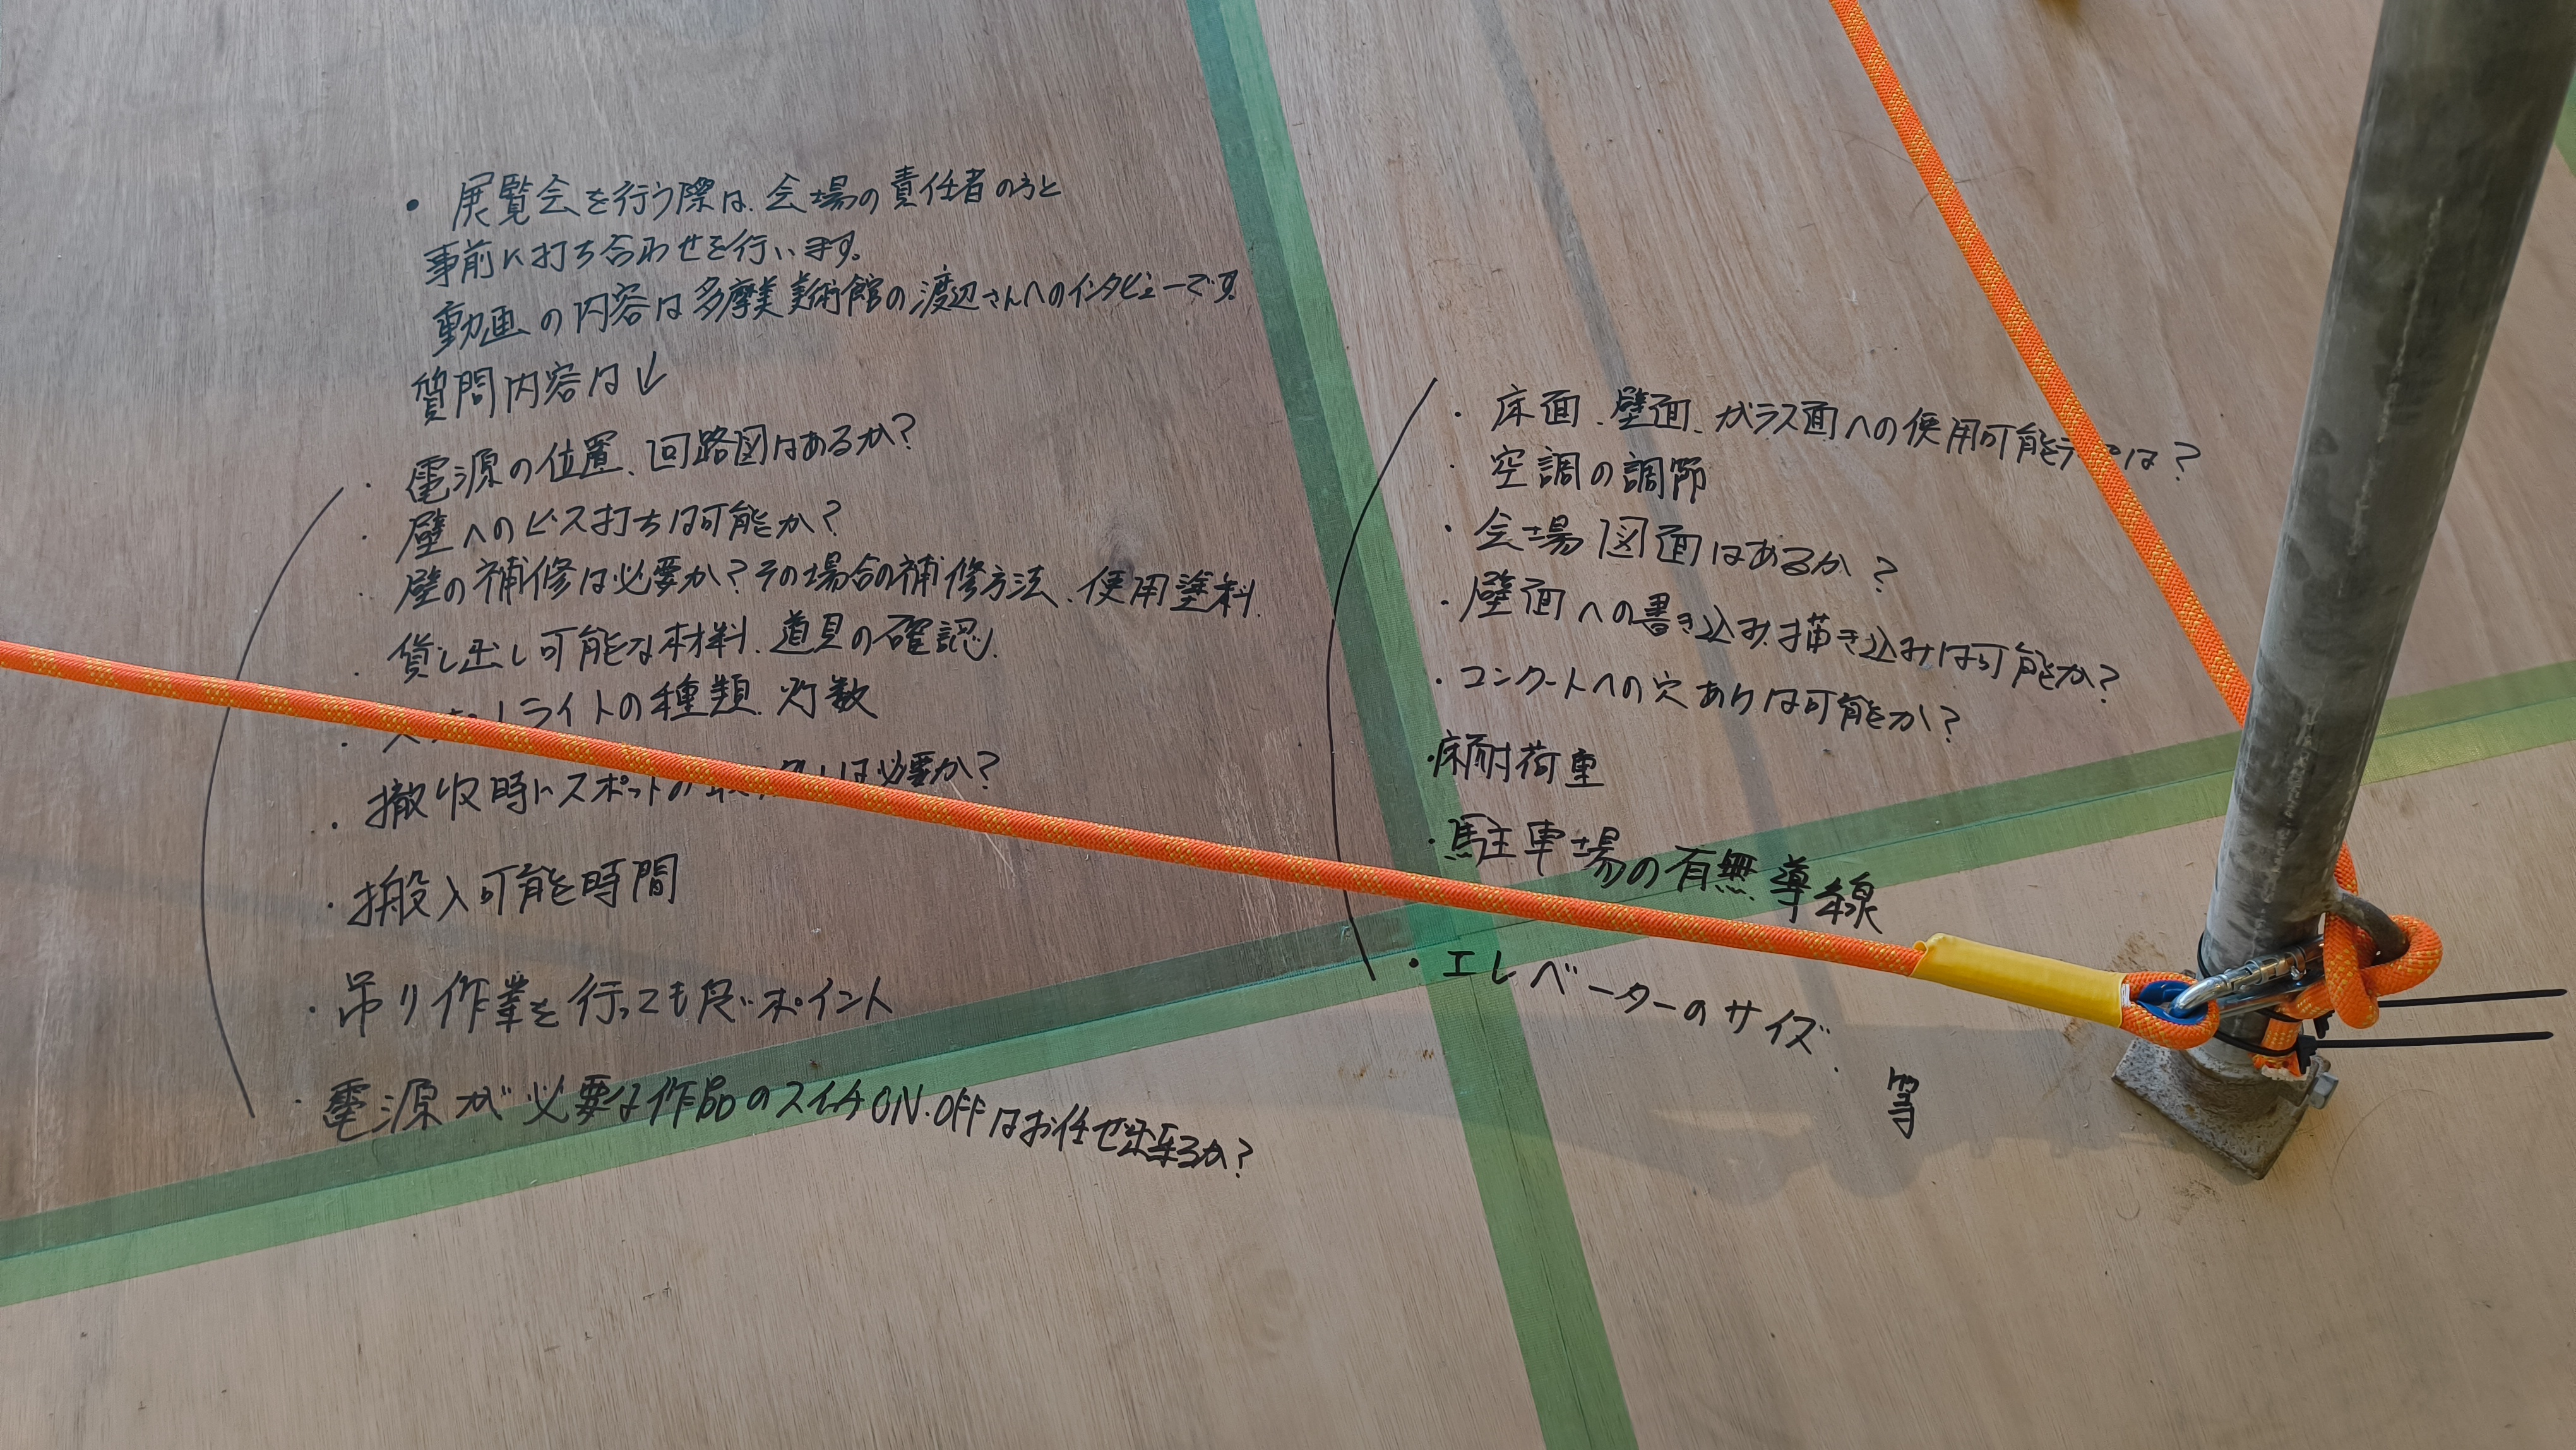 ・展覧会を行う際は、会場の責任者の方と
事前に打ち合わせを行います。
動画の内容は多摩美美術館の渡辺さんへのインタビューです。
質問内容は↓
・電源の位置、回路図はあるか?
・壁へのビス打ちは可能か?
・壁の補修は必要か?その場合の補修方法、使用塗料.
・貸し出し可能な材料、道具の確認.
・ライトの種類、灯数
・撤収時にスポットの は必要か?
・搬入可能時間
・吊り作業を行っても良いポイント
・電源が必要な作品のスイッチON・OFFはお任せ出来るか?
・床面、壁面、ガラス面への使用可能 は?
・空調の調節
・会場図面はあるか?
・壁面への書き込み、描き込みは可能か?
・コンクートへの穴ありは可能か?
・床耐荷重
・駐車場の有無、導線
・エレベーターのサイズ.
等